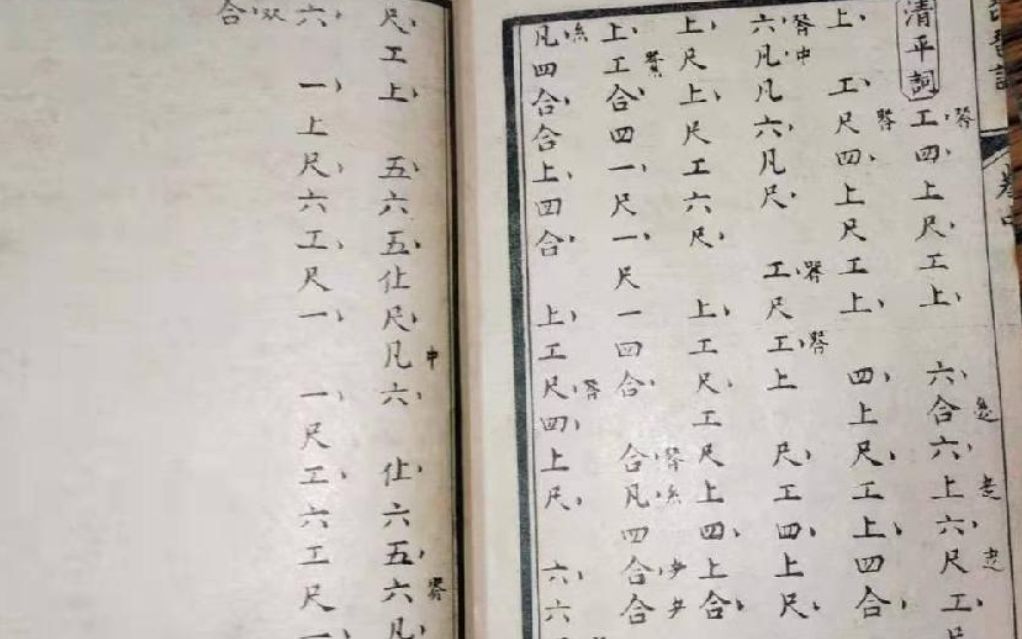 清平詞
工、四、上尺、工上、六、合六、上六、尺工、
上、工、尺四、上尺工上、四、上尺、工上、四合、
六、凡、中凡六、凡尺、工、尺工、上尺、工四、上尺、
上、尺上、尺工六尺、上、工尺、工尺上四、上合、
上、工合、四一、尺一、尺一四合、合、凡、四合、合
凡、四合、合上、四合、上、工尺、四、上尺、六、六
尺、工上、五、六五、仩尺、凡中六、仩、六五、六凡、
六、一、上尺、六工、尺一、一、尺工、六工尺一、
合、双